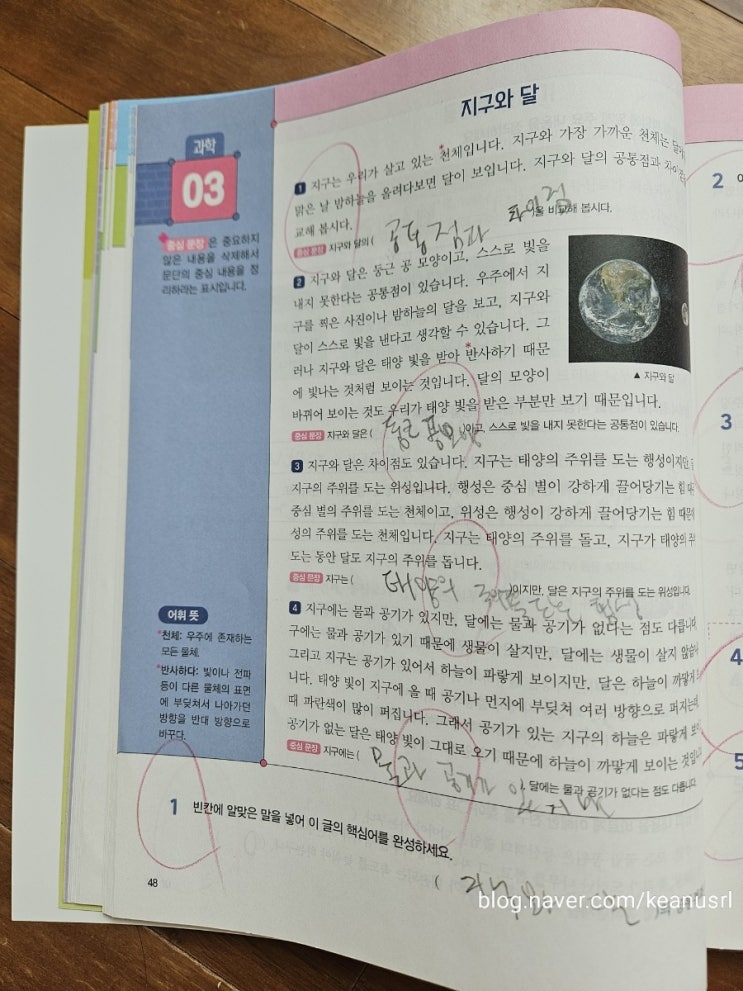 지구와 달
과학
03
중심 문장 은 중요하지
않은 내용을 삭제해서
문단의 중심 내용을 정
리하라는 표시입니다.
1 지구는 우리가 살고 있는 *천체입니다. 지구와 가장 가까운 천체는
맑은 날 밤하늘을 올려다보면 달이 보입니다. 지구와 달의 공통점과
교해 봅시다.
중심 문장 지구와 달의 ( 공통점과 차이점 )을 비교해 봅시다.
2 지구와 달은 둥근 공 모양이고, 스스로 빛을
내지 못한다는 공통점이 있습니다. 우주에서 지
구를 찍은 사진이나 밤하늘의 달을 보고, 지구와
달이 스스로 빛을 낸다고 생각할 수 있습니다. 그
러나 지구와 달은 태양 빛을 받아 *반사하기 때문
에 빛나는 것처럼 보이는 것입니다. 달의 모양이
바뀌어 보이는 것도 우리가 태양 빛을 받은 부분만 보기 때문입니다.
▲ 지구와 달
중심 문장 지구와 달은 ( 둥근 공모양 )이고, 스스로 빛을 내지 못한다는 공통점이 있습니다.
3 지구와 달은 차이점도 있습니다. 지구는 태양의 주위를 도는 행성이지만
지구의 주위를 도는 위성입니다. 행성은 중심 별이 강하게 끌어당기는 힘
중심 별의 주위를 도는 천체이고, 위성은 행성이 강하게 끌어당기는 힘
성의 주위를 도는 천체입니다. 지구는 태양의 주위를 돌고, 지구가 태양의
도는 동안 달도 지구의 주위를 돕니다.
중심 문장 지구는 ( 태양의 주위를 도는 행성 )이지만, 달은 지구의 주위를 도는 위성입니다.
4 지구에는 물과 공기가 있지만, 달에는 물과 공기가 없다는 점도 다릅니다.
구에는 물과 공기가 있기 때문에 생물이 살지만, 달에는 생물이 살지
그리고 지구는 공기가 있어서 하늘이 파랗게 보이지만, 달은 하늘이 까맣게
니다. 태양 빛이 지구에 올 때 공기나 먼지에 부딪쳐 여러 방향으로 퍼지는데,
때 파란색이 많이 퍼집니다. 그래서 공기가 있는 지구의 하늘은 파랗게
공기가 없는 달은 태양 빛이 그대로 오기 때문에 하늘이 까맣게 보이는
중심 문장 지구에는 ( 물과 공기가 있지만 ), 달에는 물과 공기가 없다는 점도 다릅니다.
어휘 뜻
*천체: 우주에 존재하는
모든 물체.
*반사하다: 빛이나 전파
등이 다른 물체의 표면
에 부딪쳐서 나아가던
방향을 반대 방향으로
바꾸다.
1 빈칸에 알맞은 말을 넣어 이 글의 핵심어를 완성하세요.
(
48
2
3
4
5
blog.naver.com/keanusrl